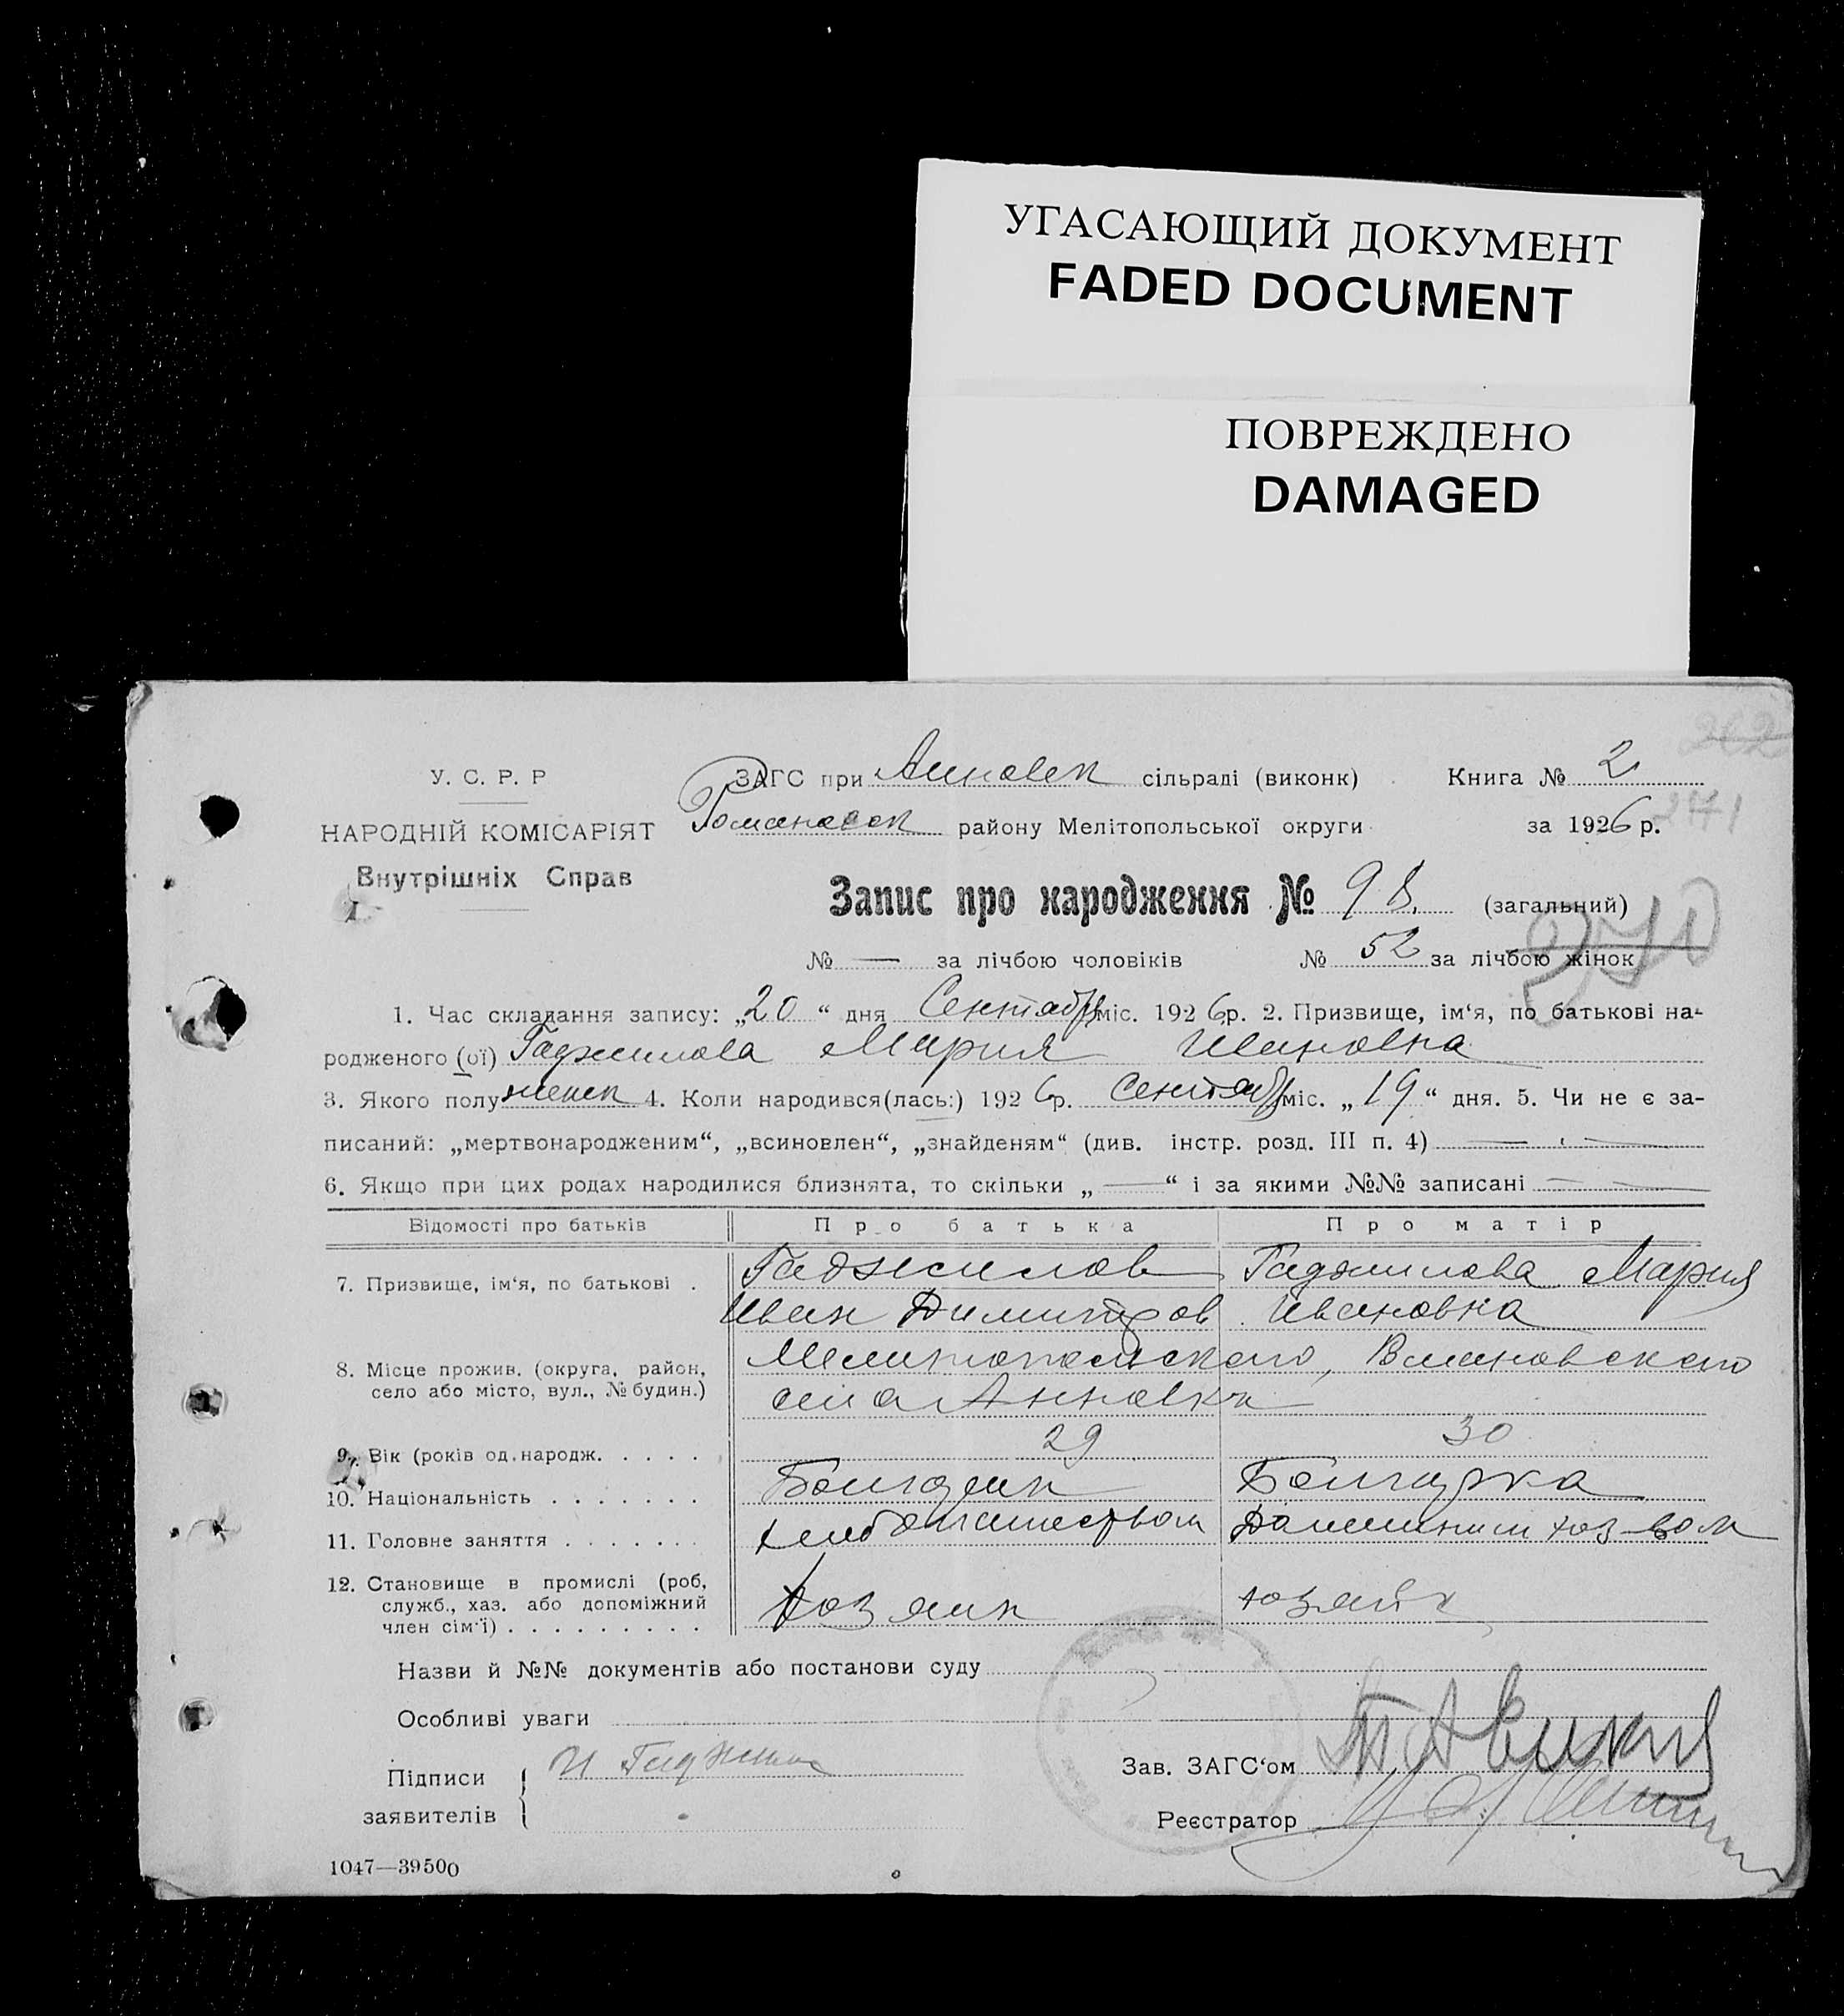 УГАСАЮЩИЙ ДОКУМЕНТ
FADED DOCUMENT
ПОВРЕЖДЕНО
DAMAGED
У. С. Р. Р
НАРОДНІЙ КОМІСАРІЯТ
Внутрішніх Справ
ЗАГС при Анновск сільраді (виконк) Книга № 2
Романовск району Мелітопольської округи за 1926 р. 271
Запис про народження № 98. (загальний)
270
№ — за лічбою чоловіків № 52 за лічбою жінок
1. Час складання запису: „20“ дня Сентябр міс. 1926 р. 2. Призвище, ім‘я, по батькові на-
родженого (ої) Гаджилова Мария Ивановна
3. Якого полу женск 4. Коли народився(лась:) 1926 р. Сентябр міс. „19“ дня. 5. Чи не є за-
писаний: „мертвонародженим“, „всиновлен“, „знайденям“ (див. інстр. розд. III п. 4) —
6. Якщо при цих родах народилися близнята, то скільки „—“ і за якими №№ записані —
Відомості про батьків Про батька Про матір
7. Призвище, ім‘я, по батькові . Гаджилов Гаджилова Мария
Иван Димитров Ивановна
8. Місце прожив. (округа, район, село або місто, вул., № будин.) Мелитопольского,
села Анновка
9. Вік (років од народж. . . . . 29 30
10. Національність . . . . . . . Болгарин Болгарка
11. Головне заняття . . . . . . . хлебопашеством Домашним хоз-вом
12. Становище в промислі (роб, служб., хаз. або допоміжний член сім‘ї) . . . . . . . . . Хозяин хозяйк
Назви й №№ документів або постанови суду
Особливі уваги
Підписи заявителів И Гаджилов
Зав. ЗАГС‘ом
Реєстратор
1047—39500